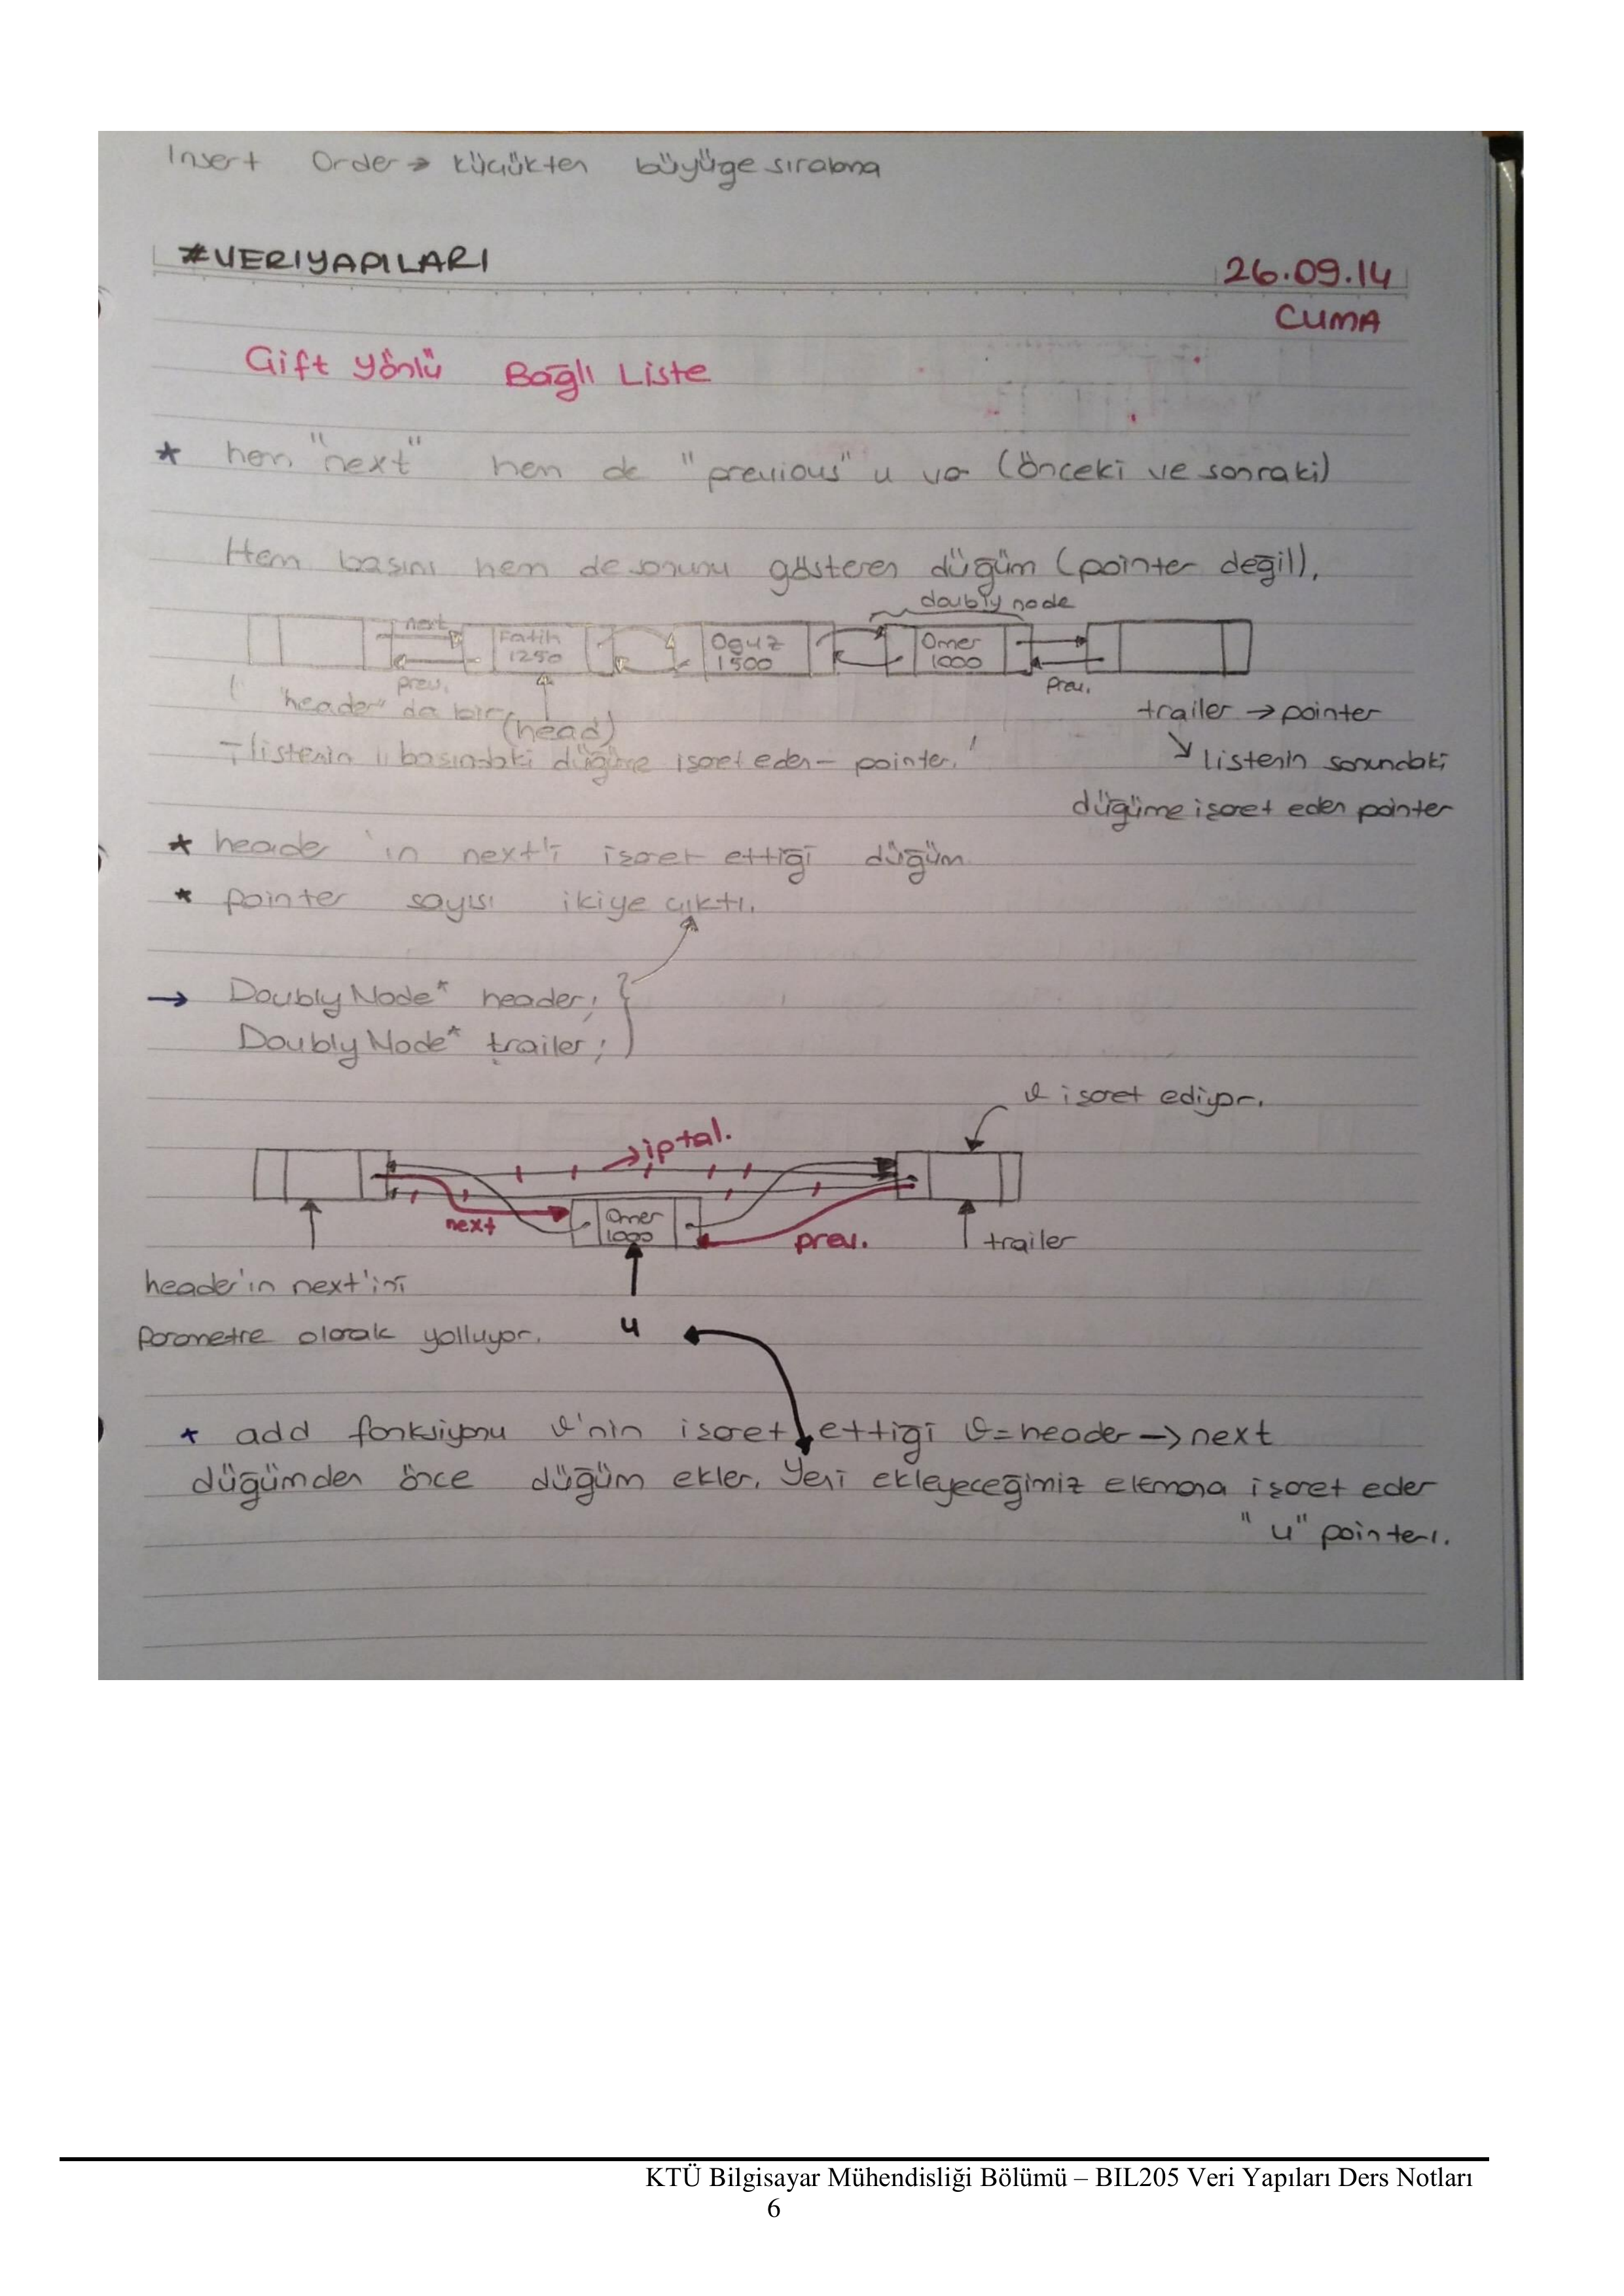 Insert Order → küçükten büyüğe sıralama
#VERIYAPILARI
26.09.14
CUMA
Çift Yönlü Bağlı Liste
* hem "next" hem de "previous" u var (önceki ve sonraki)
Hem başını hem de sonunu gösteren düğüm (pointer değil),
doubly node
next
Fatih 1250
Oğuz 1500
Ömer 1000
prev.
prev.
( "header" da bir
(head)
trailer → pointer
listenin başındaki düğüme işaret eden - pointer.
↘ listenin sonundaki
düğüme işaret eden pointer
* header 'ın next'i işaret ettiği düğüm
* pointer sayısı ikiye çıktı.
→ DoublyNode* header;
DoublyNode* trailer;
v işaret ediyor.
→ iptal.
next
Ömer 1000
prev.
trailer
header'ın next'ini
parametre olarak yolluyor.
u
* add fonksiyonu v'nin işaret ettiği v=header->next
düğümden önce düğüm ekler. Yeni ekleyeceğimiz elemana işaret eder
"u" pointerı.
KTÜ Bilgisayar Mühendisliği Bölümü – BIL205 Veri Yapıları Ders Notları
6